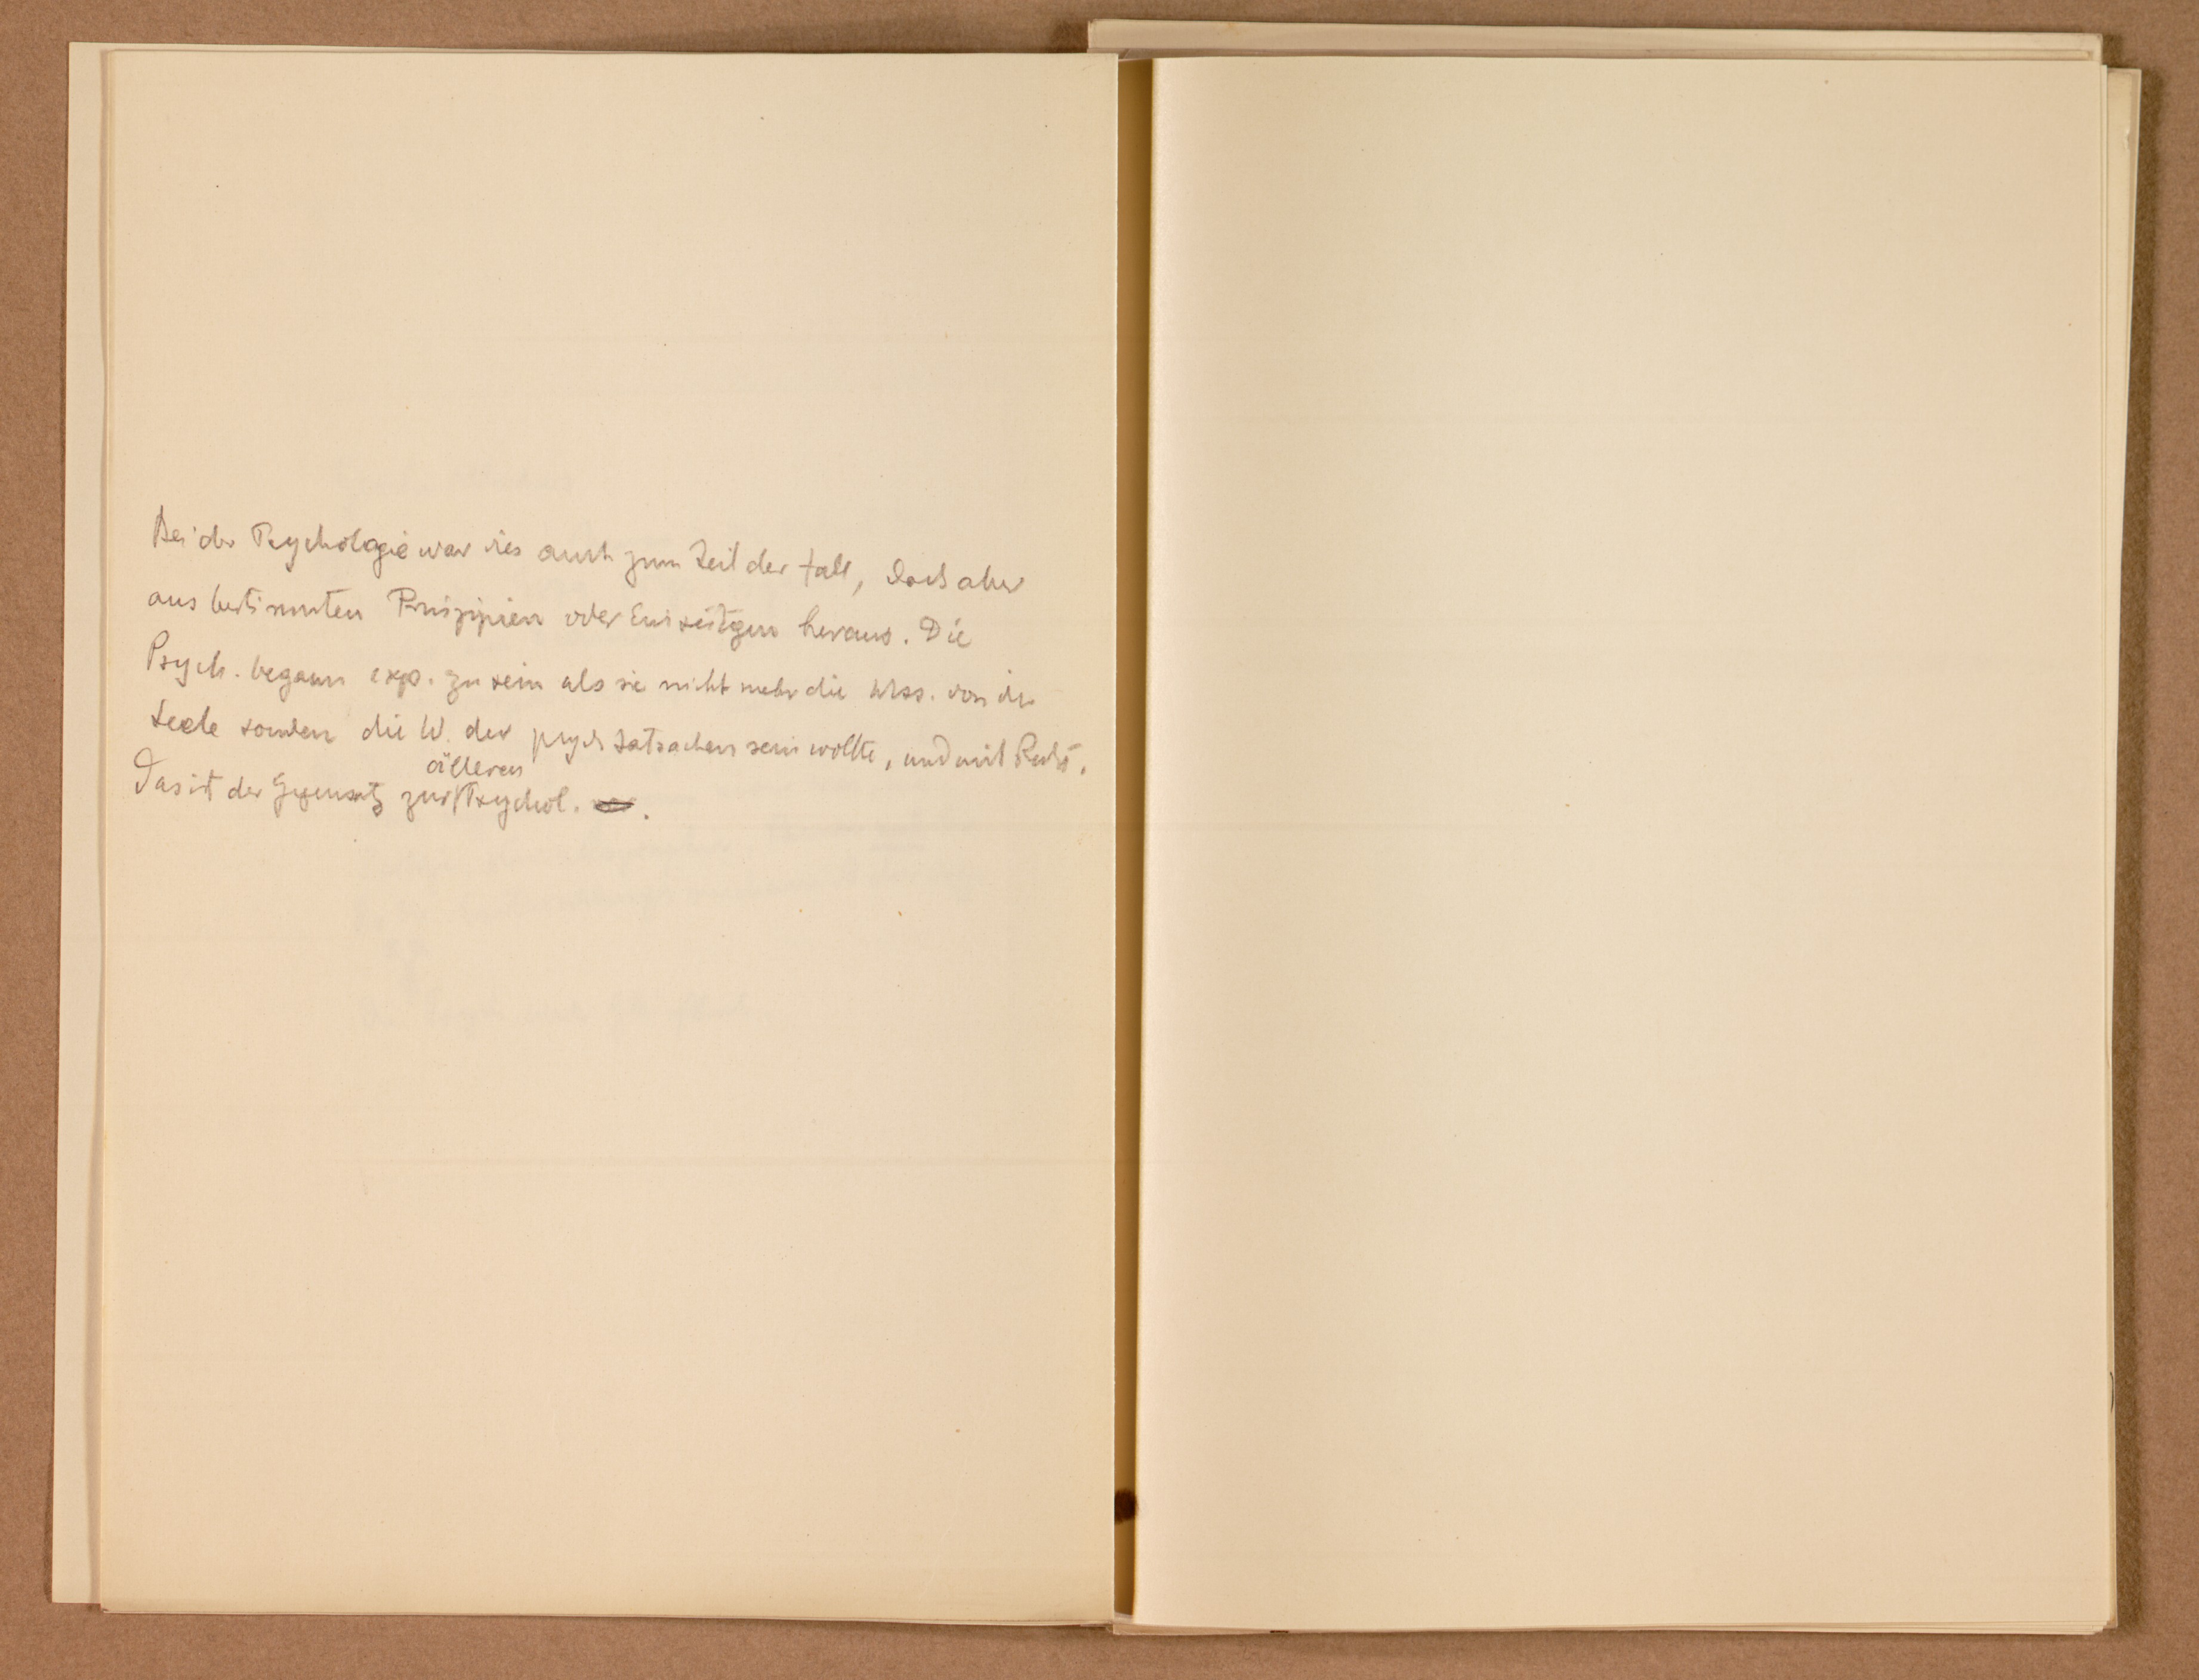 Bei der Psychologie war dies auch zum Teil der Fall, doch aber
aus bestimmten Prinzipien oder heraus. Die
Psych. begann exp. zu sein als sie nicht mehr die Wiss. von der
Seele sondern die W. der psych Tatsachen sein wollte, und mit Recht.
älteren
Das ist der Gegensatz zur Psychol. .